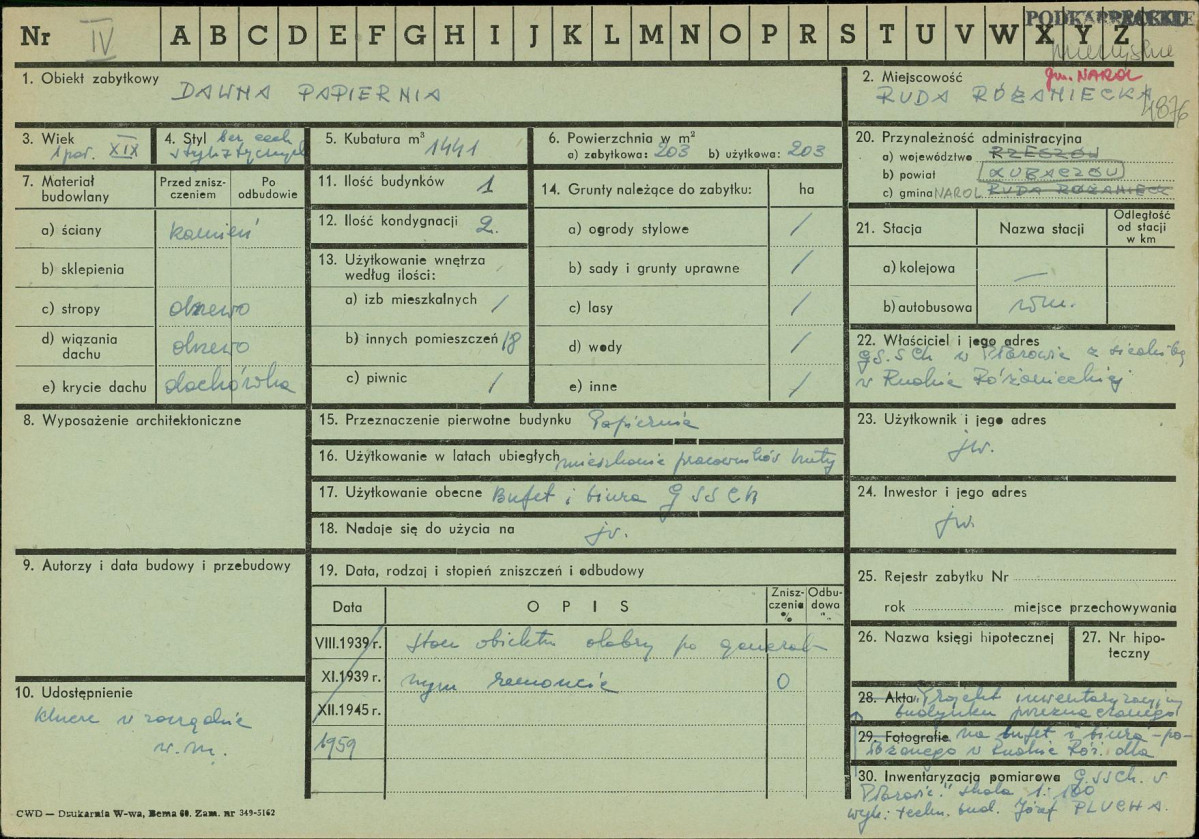 Nr IV A B C D E F G H I J K L M N O P R S T U V W X Y Z
1. Obiekt zabytkowy
DAWNA PAPIERNIA
2. Miejscowość
gm. NAROL
RUDA RÓŻANIECKA
4876
3. Wiek
1 poł. XIX
4. Styl bez cech
stylistycznych
5. Kubatura m³ 1441
6. Powierzchnia w m²
a) zabytkowa: 203 b) użytkowa: 203
20. Przynależność administracyjna
a) województwo RZESZÓW
b) powiat LUBACZÓW
c) gmina NAROL RUDA RÓŻANIECK
7. Materiał budowlany
Przed znisz-
czeniem
Po
odbudowie
a) ściany kamień
b) sklepienia
c) stropy drzewo
d) wiązania
dachu drzewo
e) krycie dachu dachówka
11. Ilość budynków 1
12. Ilość kondygnacji 2.
13. Użytkowanie wnętrza
według ilości:
a) izb mieszkalnych /
b) innych pomieszczeń 18
c) piwnic /
14. Grunty należące do zabytku: ha
a) ogrody stylowe /
b) sady i grunty uprawne /
c) lasy /
d) wody /
e) inne /
21. Stacja
Nazwa stacji
Odległość
od stacji
w km
a) kolejowa —
b) autobusowa
22. Właściciel i jego adres
GS.SCh w Płazowie z siedzibą
w Rudzie Różanieckiej
8. Wyposażenie architektoniczne
15. Przeznaczenie pierwotne budynku Papiernia
16. Użytkowanie w latach ubiegłych mieszkanie pracowników huty
17. Użytkowanie obecne Bufet i biura GSSCh
18. Nadaje się do użycia na jw.
23. Użytkownik i jego adres
jw.
24. Inwestor i jego adres
jw.
9. Autorzy i data budowy i przebudowy
19. Data, rodzaj i stopień zniszczeń i odbudowy
Data
OPIS
Znisz-
czenia
%
Odbu-
dowa
"..
VIII.1939 r. Stan obiektu dobry po general-
XI.1939 r. nym remoncie 0
XII.1945 r.
1959
25. Rejestr zabytku Nr
rok miejsce przechowywania
26. Nazwa księgi hipotecznej
27. Nr hipo-
teczny
10. Udostępnienie
klucze w zarządzie
w. m.
28. Akta Projekt inwentaryzacyjny
budynku przeznaczonego
29. Fotografie na bufet i biura - po-
łożonego w Rudzie Róż. dla
30. Inwentaryzacja pomiarowa GSSCh. w
Płazowie" skala 1:100
wyk: techn. bud. Józef PLUCHA.
CWD — Drukarnia W-wa, Bema 60. Zam. nr 349-5162